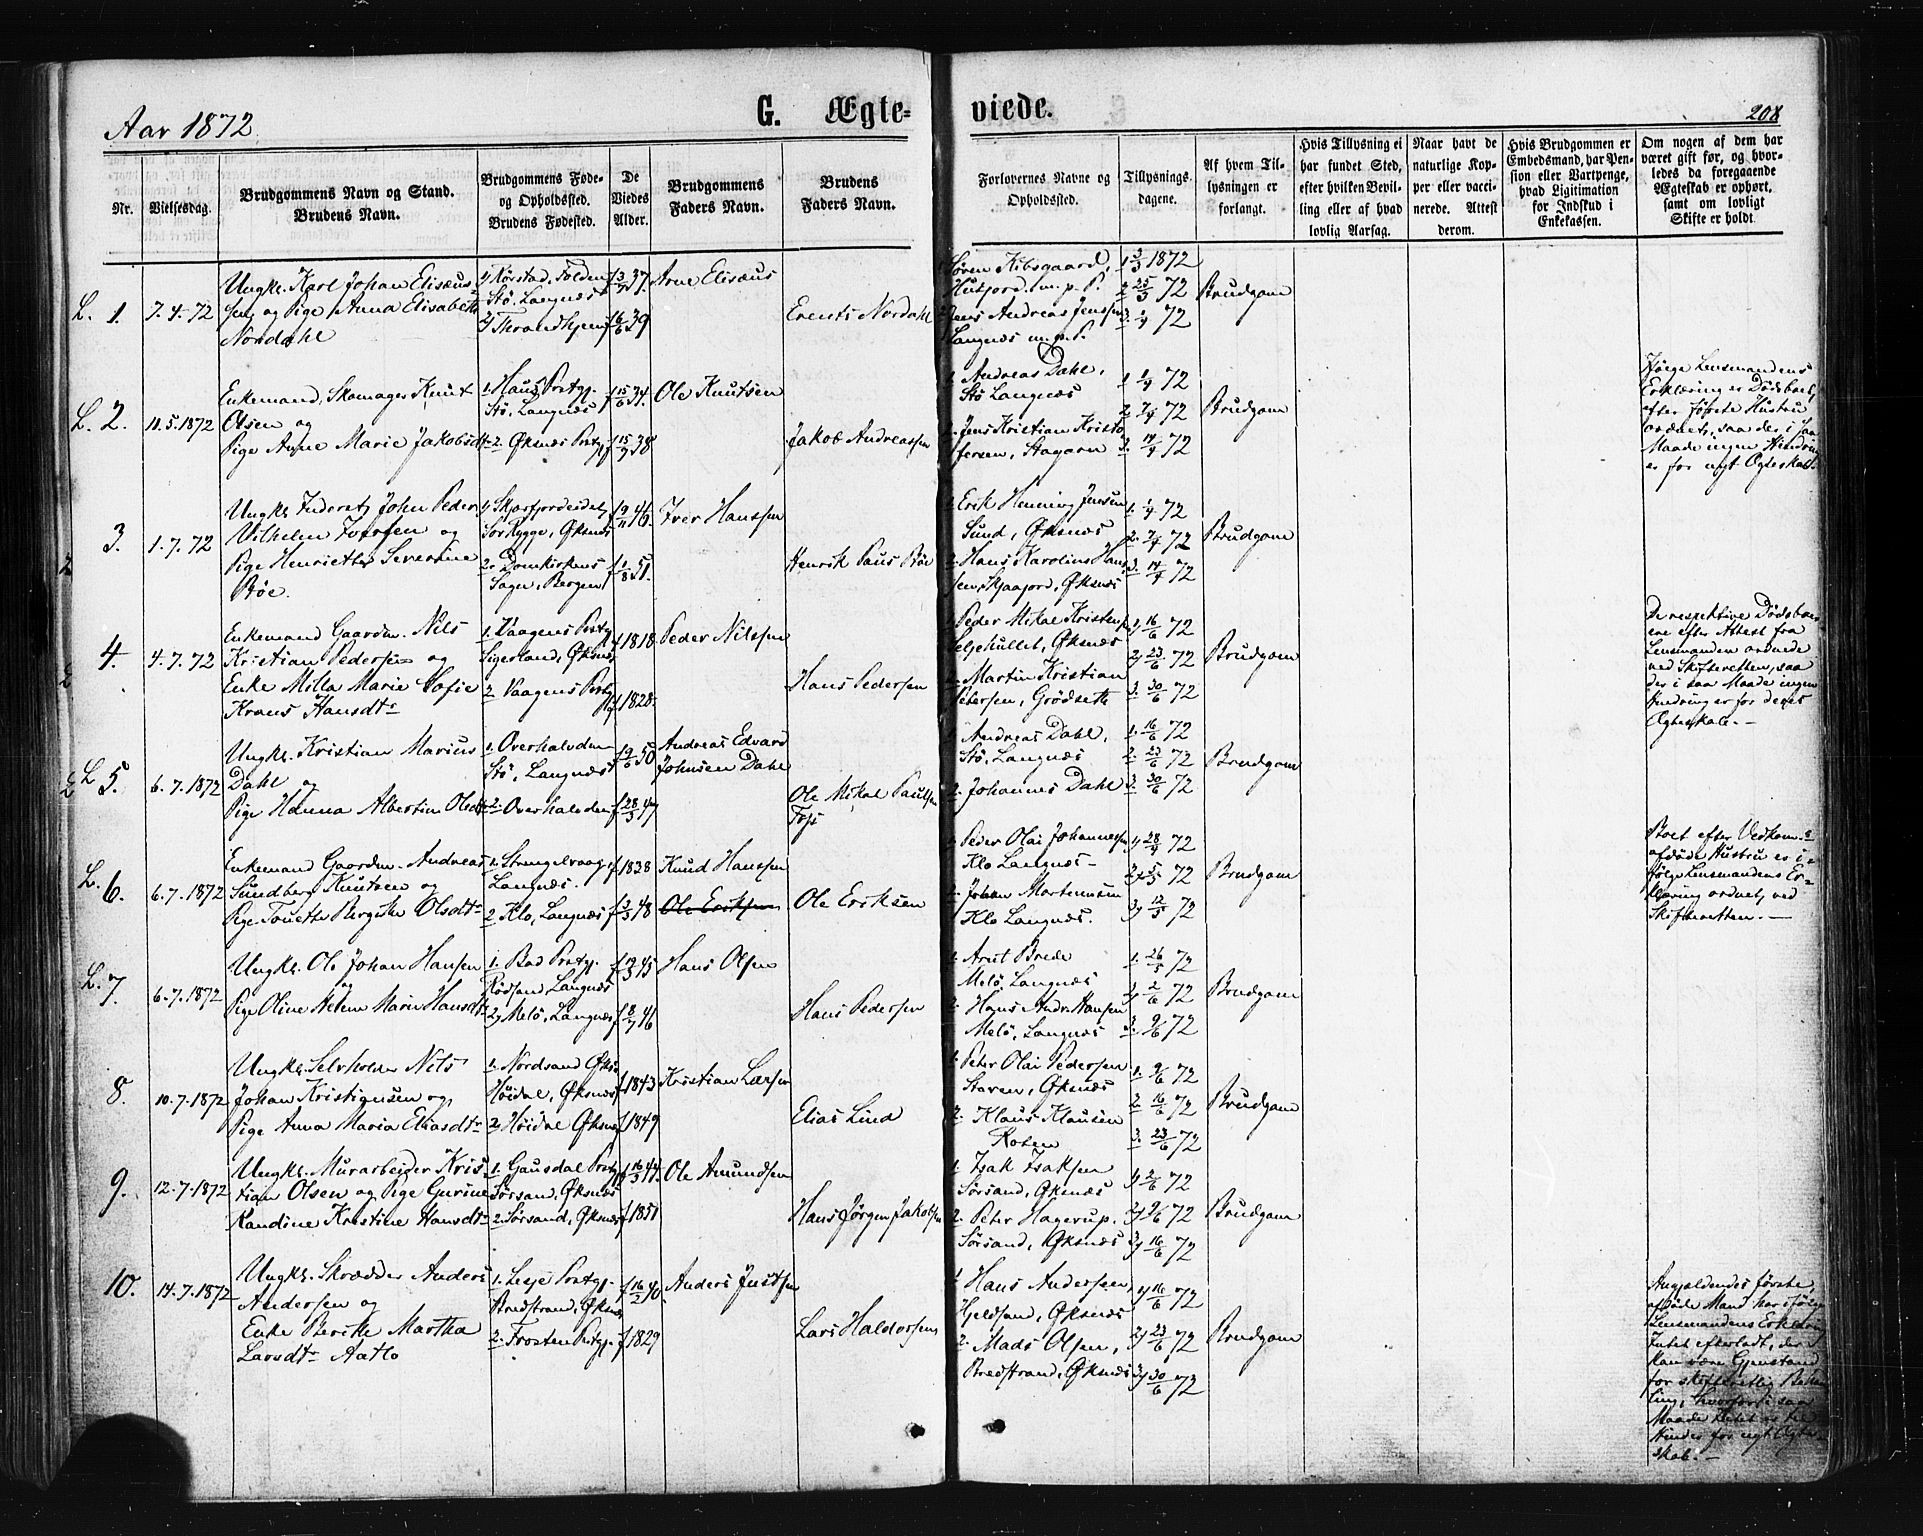 Aar 1872.
G. Ægte-
viede.
208
Nr.
Vielsesdag.
Brudgommens Navn og Stand.
Brudens Navn.
Brudgommens Føde-
og Opholdssted.
Brudens Fødested.
De
Viedes
Alder.
Brudgommens
Faders Navn.
Brudens
Faders Navn.
Forlovernes Navne og
Opholdssted.
Tillysnings-
dagene.
Af hvem Til-
lysningen er
forlangt.
Hvis Tillysning ei
har fundet Sted,
efter hvilken Bevil-
ling eller af hvad
lovlig Aarsag.
Naar havt de
naturlige Kop-
per eller vacci-
nerede. Attest
derom.
Hvis Brudgommen er
Embedsmand, har Pen-
sion eller Vartpenge,
hvad Ligitimation
for Indskud i
Enkekassen.
Om nogen af dem har
været gift før, og hvor-
ledes da foregaaende
Ægteskab er ophørt,
samt om lovligt
Skifte er holdt.
L. 1.
7.4.72
Ungk. Karl Johan Elisæus-
sen og Pige Anna Elisabeth
Nordahl
1) Kørstad, Folden
Stø, Langnæs
2) Throndhjem
f 3/7 37.
f 6/6 39
Arne Elisæus
Erents Nordahl
Søren Kibsgaard,
Husjord. m. p. P.
Jens Andreas Jenssen
Langnæs m. p. P.
1 3/3 1872
2 25/3 72
3. 1/4 72
Brudgom
L. 2.
11.5.1872
Enkemand, Skomager Knut
Olsen og
Pige Anne Marie Jakobsdt
1. Haus Prstgj.
Stø, Langnæs
2. Øksnæs Prstgj.
f 15/6 34.
f 15/7 38
Ole Knutsen
Jakob Andreassen
1. Andreas Dahl,
Stø Langnæs
2. Jens Kristian Kristo
fersen, Stagarn
1 1/4 72
2. 7/4 72
3. 14/4 72
Brudgom
Ifølge Lensmandens
Erklæring er Dødsboet
efter første Hustru
ordnet, saa der i saa
Maade ingen Hindring
er for nyt Ægteskab.
3.
1.7.72
Ungk. Inderst John Peder
Vilhelm Iversen og
Pige Henriette Severine
Bøe.
1) Skjærfjordeidet,
Sørkygge, Øksnæs
2. Domkirkens
Sogn, Bergen
f 9/11 46.
f 1/8 51.
Iver Hanssen
Henrik Paus Bøe
1. Erik Henning Jensen
Sund, Øksnæs
2. Hans Karolius Han-
sen, Skjaafjord, Øksnæs
1. 1/4 72
2. 7/4 72
3. 14/4 72
Brudgom
4.
4.7.72
Enkemand Gaardm. Nils
Kristian Pedersen og
Enke Milla Marie Sofie
Krans Hansdtr
1. Vaagens Prstgj.
Sigerland, Øksnæs
2. Vaagens Prstgj.
f 1818
f 1828.
Peder Nilssen
Hans Pedersen
Peder Mikal Kristensen
Seljehullet, Øksnæs
2. Martin Kristian
Petersen, Grødseth
1) 16/6 72
2) 23/6 72
3. 30/6 72
Brudgom
De respektive Dødsbo-
ere efter Attest fra
Lensmanden ordnede
ved Skifteretten, saa
der i saa Maade ingen
Hindring er for deres
Ægteskab. —
L. 5.
6.7.1872
Ungk. Kristian Marius
Dahl og
Pige Hanna Albertin Olsdt
1. Overhalvden
Stø, Langnæs
2. Overhalvden
f 19/6 50
f 28/3 47
Andreas Edvard
Johnsen Dahl
Ole Mikal Paulsen
1. Andreas Dahl,
Stø, Langnæs
2. Johannes Dahl
1. 16/6 72
2. 23/6 72
3. 30/6 72
Brudgom
L. 6.
6.7.1872
Enkemand Gaardm. Andreas
Sundberg Knutsen og
Pige Tonette Bergithe Olsdtr
1. Strengelvaag
Langnæs.
2. Klo, Langnæs
f 1838
f 3/5 48
Knud Hanssen
Ole Eriksen
Ole Eriksen
1. Peder Olai Johannessen
Klo Langnæs —
2. Johan Mortensen
Klo Langnæs.
1) 28/4 72
2) 5/5 72
3) 12/5 72
Brudgom
Boet efter Vedkom.s
afdøde Hustru er i-
følge Lensmandens Er-
klæring ordnet, ved
Skifteretten. —
L. 7.
6.7.1872
Ungk. Ole Johan Hansen
og
Pige Oline Helene Marie Hansdtr
1. Bad Prstgj.
Rødsand Langnæs
2) Melø, Langnæs
f 19/3 45
f 8/7 46
Hans Olsen
Hans Pedersen
1. Arnt Brede
Melø, Langnæs
2. Hans Andr. Hansen
Melø, Langnæs
1. 26/5 72
2) 2/6 72
3. 9/6 72
Brudgom
8.
10.7.1872
Ungk. Selvholder Nils
Johan Kristiansen og
Pige Anna Maria Eliasdtr
1. Nordsand Øks.
Høidal, Øksnæs
2) Høidal Øksnæs
f 1843
f 1849
Kristian Larsen
Elias Lind
1. Peter Olai Pedersen
Staven, Øksnæs
2. Klaus Klausen
Roten
1. 9/6 72
2. 16/6 72
3. 23/6 72
Brudgom
9.
12.7.1872
Ungk. Murarbeider Kris-
tian Olsen og Pige Gurine
Randine Kristine Hansdtr
1. Gausdal Prstgj.
Sørsand, Øksnæs
2. Sørsand, Øksnæs
f 16/3 44.
f 1851
Ole Amundsen
Hans Jørgen Jakobsen
1. Isak Isaksen
Sørsand, Øksnæs
2. Peter Hagerup,
Sørsand, Øksnæs
1) 2/6 72
2) 9/6 72
3) 16/6 72
Brudgom
10.
14.7.1872
Ungk. Skrædder Anders
Andersen og
Enke Berithe Martha
Larsdtr Aatlo
1. Lesje Prstgj.
Bredstrand, Øksnæs
2. Frosten Prstgj.
f 16/2 40
f 1829
Anders Justsen
Lars Haldorsen
1. Hans Andersen,
Hjeldsand, Øksnæs
2. Mads Olsen,
Bredstrand, Øksnæs
1) 16/6 72
2) 23/6 72
3) 30/6 72
Brudgom
Angjældendes første,
afdøde Mand har ifølge
Lensmandens Erklæring
Intet efterladt, der
kan være Gjenstand
for skifteretlig Behand-
ling, hvorfor i saa
Maade Intet er til
Hinder for nyt Ægte-
skab. —